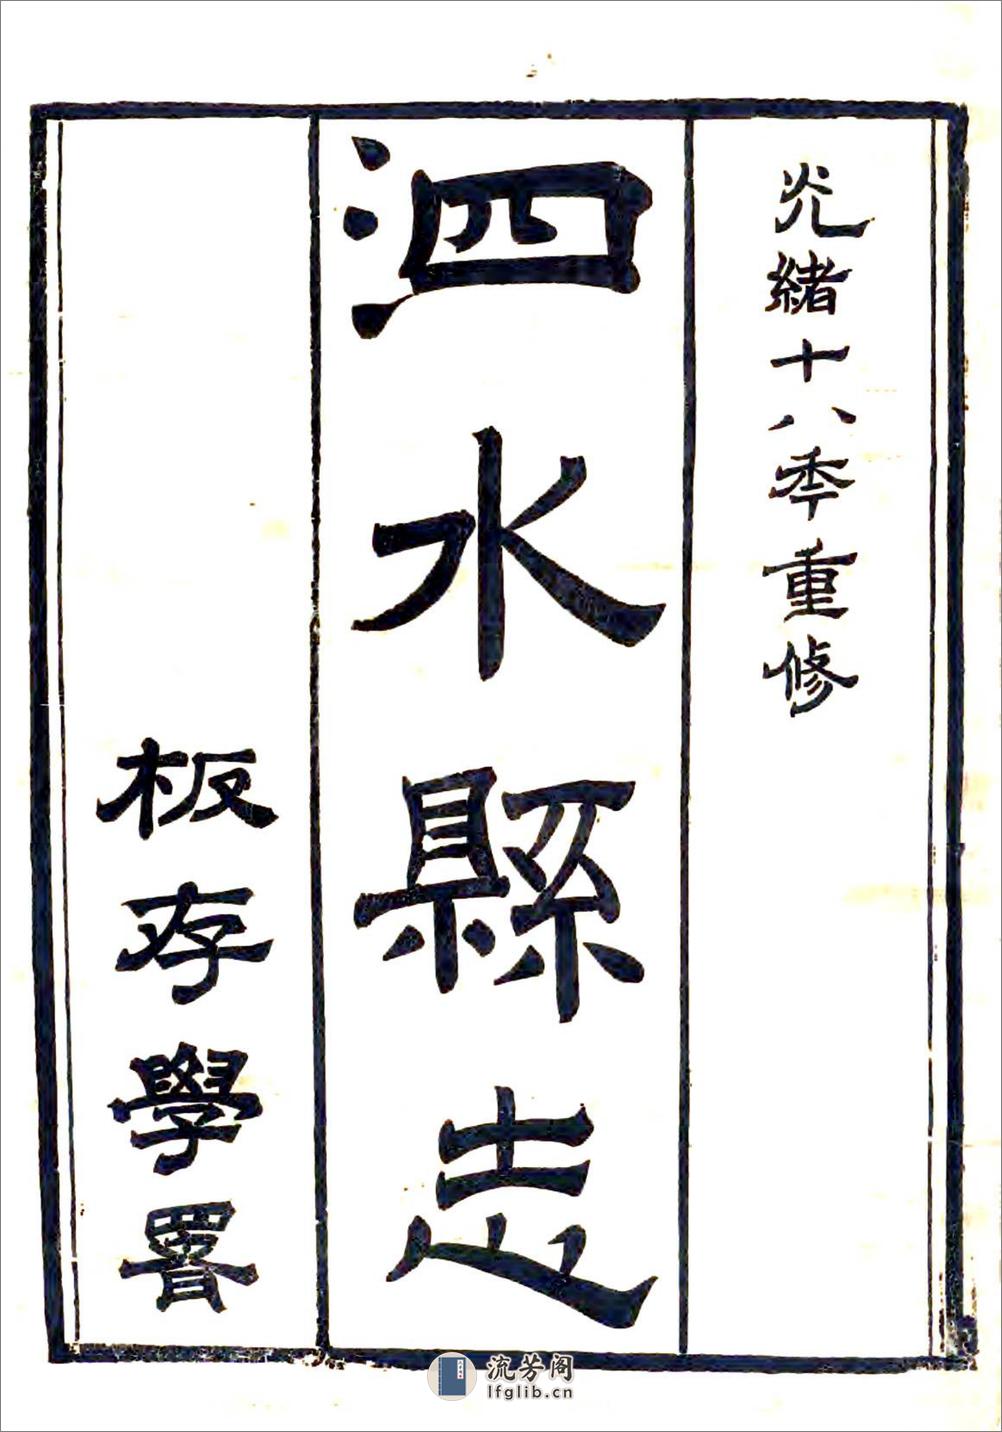 光緒十八季重修
泗水縣志
板存學署
流芳阁
lfglib.cn